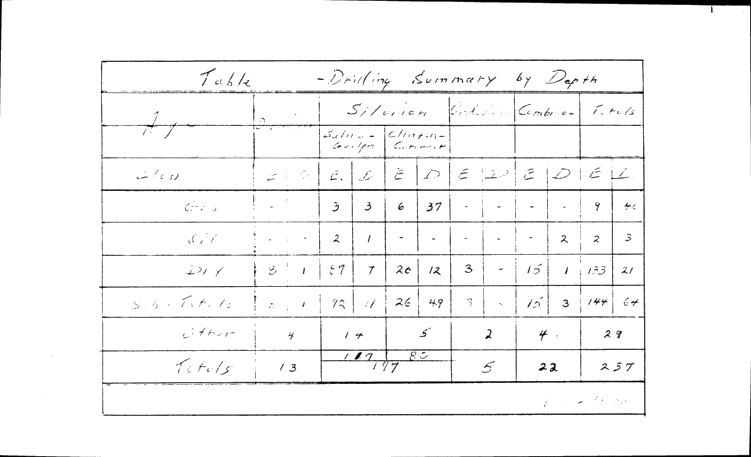 Table - Drilling Summary by Depth
Age Silurian Cambrian Totals
Salina- Guelph Clinton- Cataract
Class E D E. D E D E D E D E D
Gas - 3 3 6 37 - - - - 9 40
Oil - - 2 1 - - - - - 2 2 3
Dry 8 1 87 7 20 12 3 - 15 1 133 21
Sub-Totals 1 92 11 26 49 3 - 15 3 144 64
Other 4 14 5 2 4 29
107 80
Totals 13 187 5 22 237